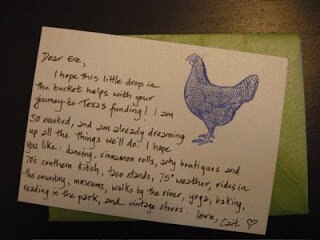 Dear Eve,
I hope this little drop in
the bucket helps with your
journey to Texas funding! I am
so excited, and am already dreaming
up all the things we'll do. I hope
you like: dancing, cinnamon rolls, arty boutiques and
70's southern kitsh, taco stands, 75° weather, rides in
the country, museums, walks by the river, yoga, baking,
reading in the park, and vintage stores. love,